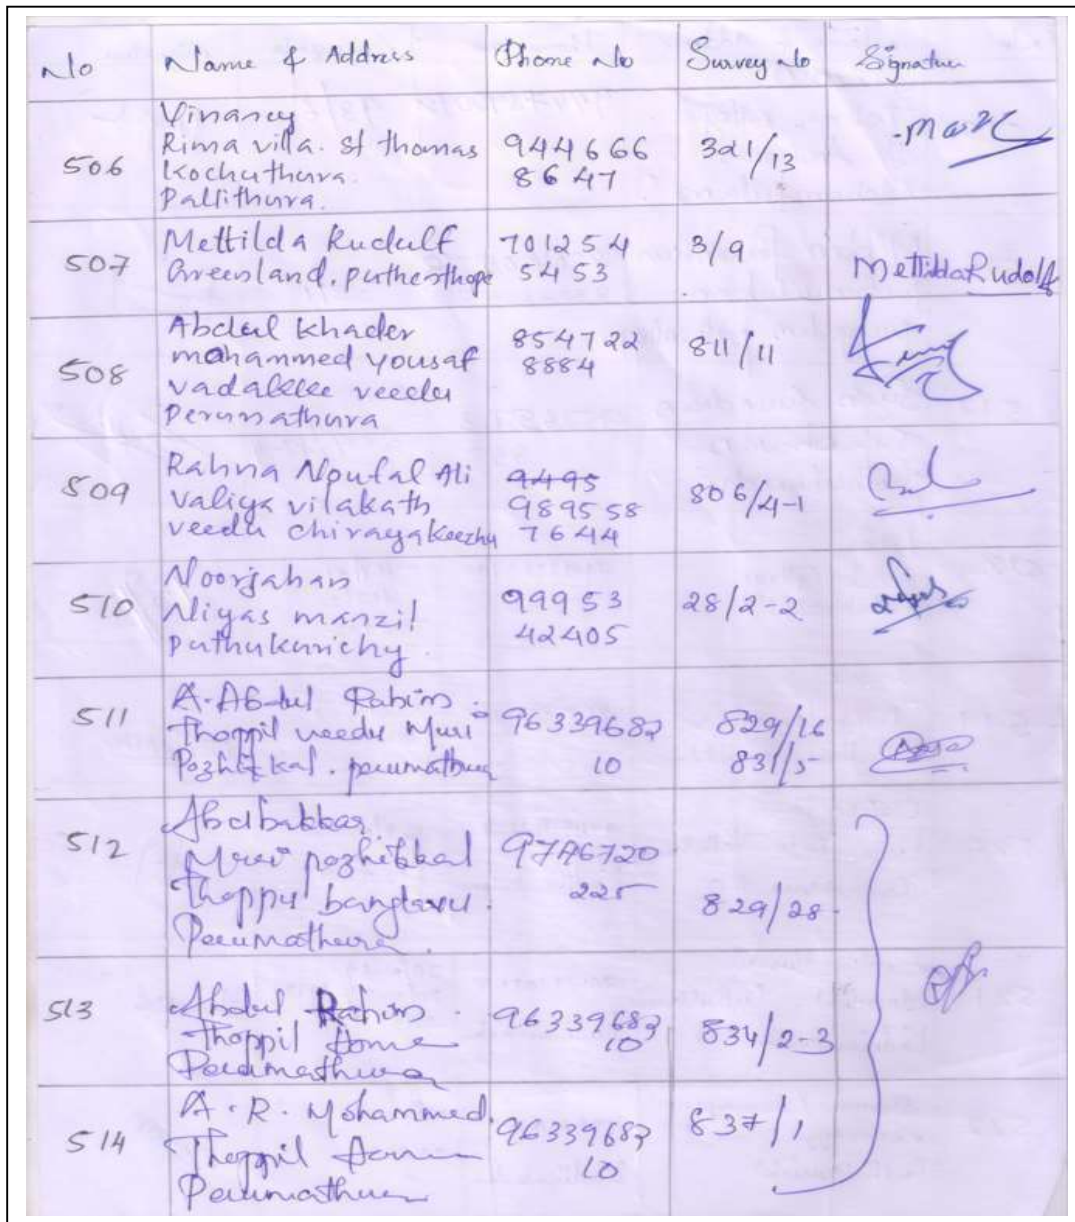 No Name & Address Phone No Survey No Signature
506
Vinancy
Rima villa. St thomas
Kochuthura.
Pallithura.
944666
8647
321/13
507
Mettilda Rudulf
Greenland. puthenthope
701254
5453
3/9
Mettilda Rudolf
508
Abdul Khader
mohammed yousaf
vadakke veedu
Perumathura
854722
8884
811/11
509
Rahna Noufal Ali
Valiya vilakath
veedu chirayakeezhu
9495
989558
7644
806/4-1
510
Noorjahan
Aliyas manzil
puthukurichy.
99953
42405
28/2-2
511
A. Abdul Rahim
Thoppil veedu Muri
Pozhikkal. perumathura
96339682
10
829/16
831/5
512
Abdbakkar
Muri pozhikkal
Thoppil
Perumathura
9746720
225
829/28
513
Abdul Rahim
Thoppil
Perumathura
96339682
10
834/2-3
514
A. R. Mohammed.
Thoppil
Perumathura
96339682
10
837/1